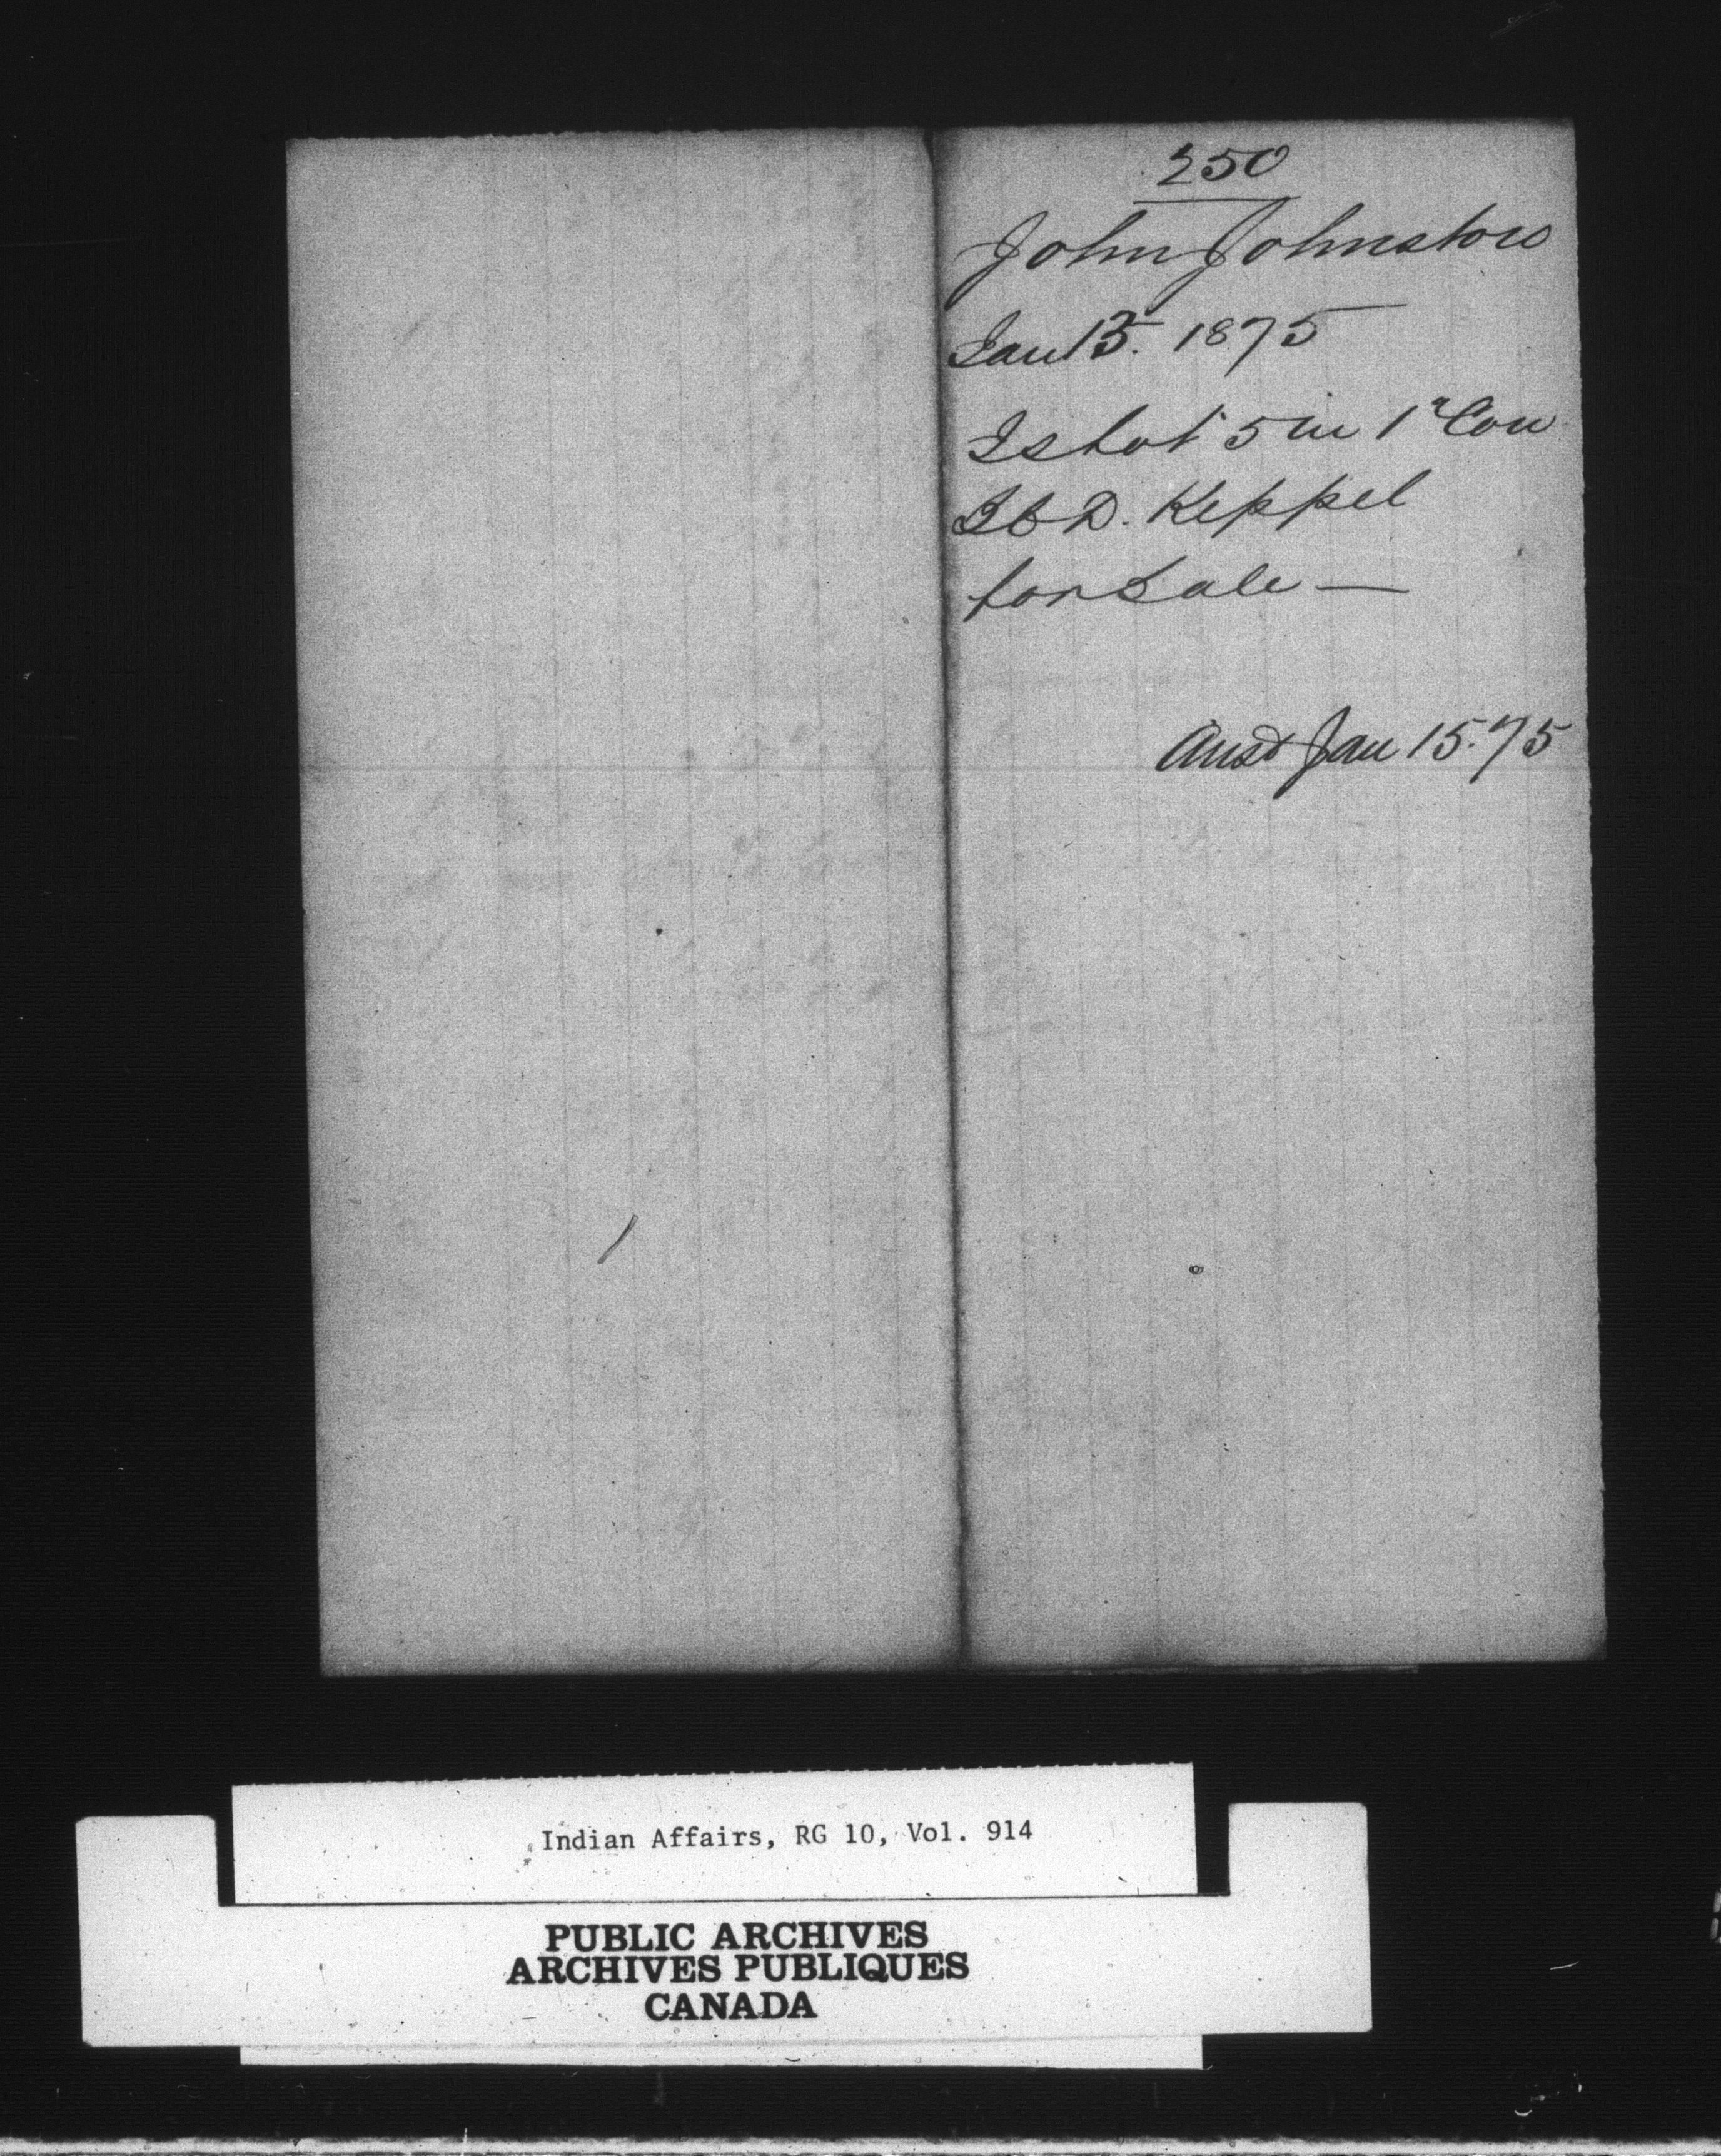 250
John Johnston
Jan 13. 1875
Is Lot 5 in 1st Con
S C D. Keppel
for Sale —
Ansd Jan 15. 75
Indian Affairs, RG 10, Vol. 914
PUBLIC ARCHIVES
ARCHIVES PUBLIQUES
CANADA